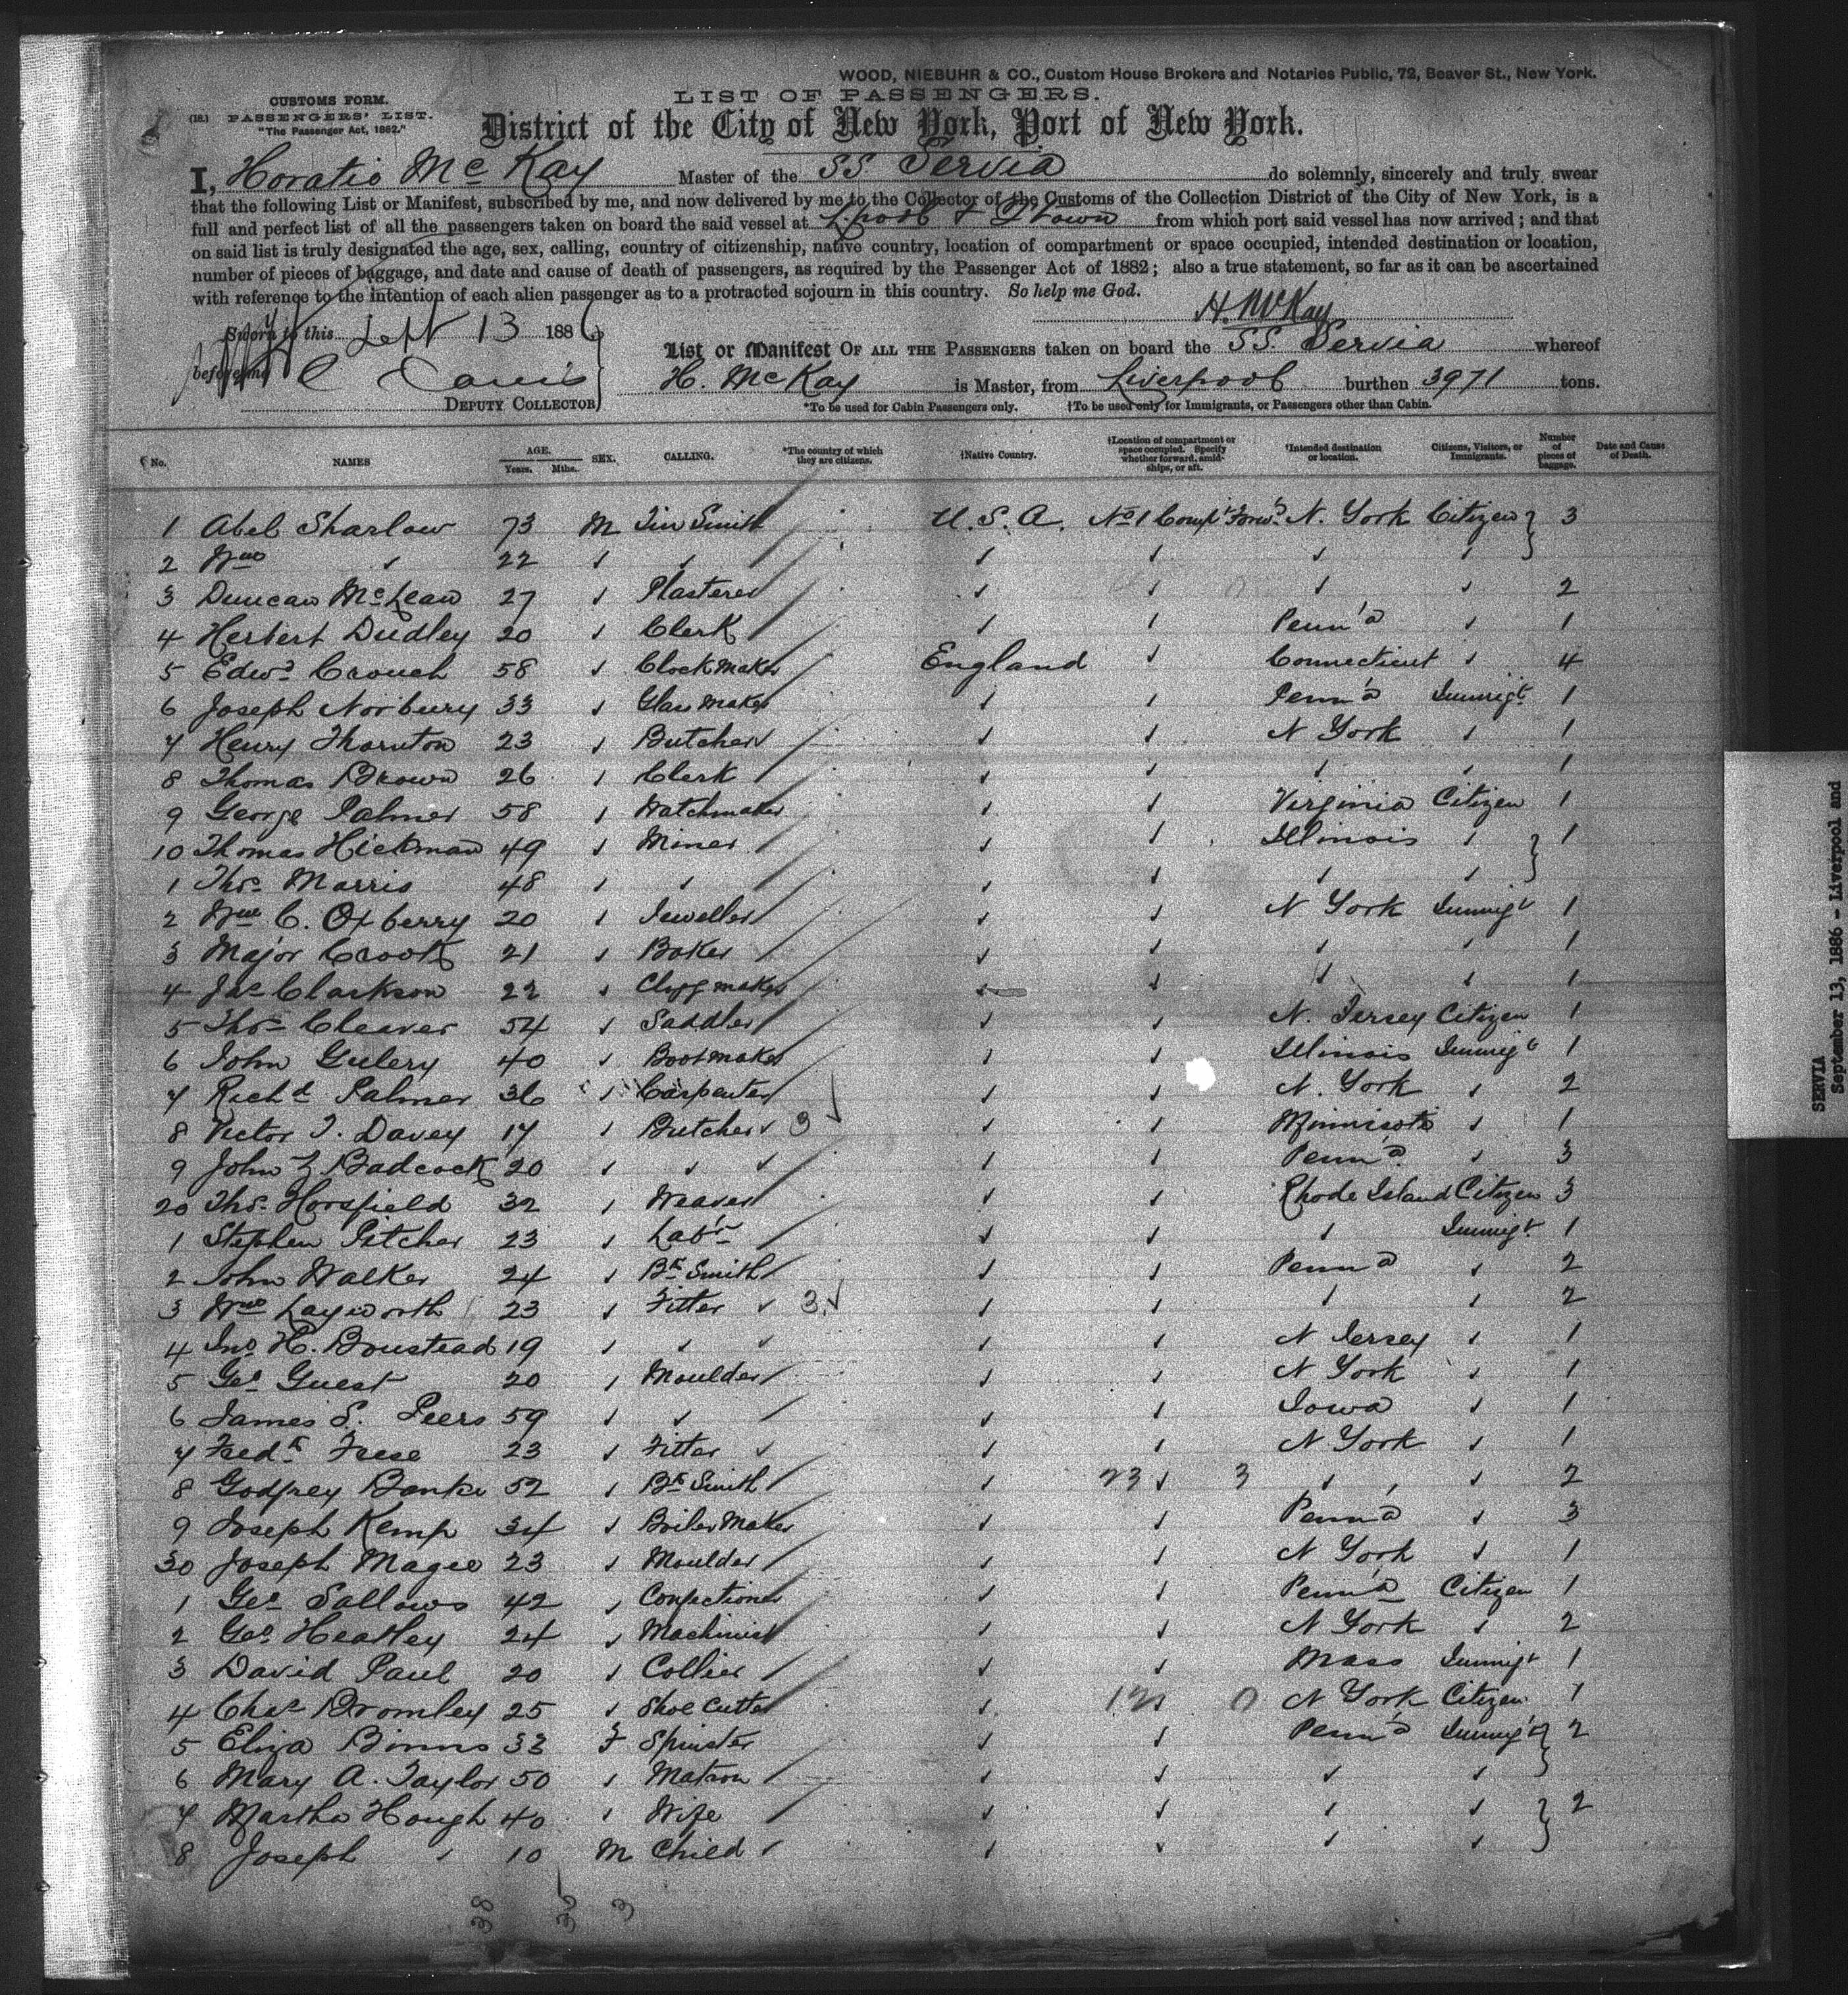 WOOD, NIEBUHR & CO., Custom House Brokers and Notaries Public, 72, Beaver St., New York.
LIST OF PASSENGERS.
(18.) CUSTOMS FORM.
PASSENGERS' LIST.
"The Passenger Act, 1882."
District of the City of New York, Port of New York.
I, Horatio McKay Master of the SS Servia do solemnly, sincerely and truly swear
that the following List or Manifest, subscribed by me, and now delivered by me to the Collector of the Customs of the Collection District of the City of New York, is a
full and perfect list of all the passengers taken on board the said vessel at L.pool & Qtown from which port said vessel has now arrived; and that
on said list is truly designated the age, sex, calling, country of citizenship, native country, location of compartment or space occupied, intended destination or location,
number of pieces of baggage, and date and cause of death of passengers, as required by the Passenger Act of 1882; also a true statement, so far as it can be ascertained
with reference to the intention of each alien passenger as to a protracted sojourn in this country. So help me God.
H. McKay
Sworn to this Sept 13 1886
before me C Davis
DEPUTY COLLECTOR
List or Manifest OF ALL THE PASSENGERS taken on board the SS. Servia whereof
H. McKay is Master, from Liverpool burthen 3971 tons.
*To be used for Cabin Passengers only. †To be used only for Immigrants, or Passengers other than Cabin.
No. NAMES AGE. Years. Mths. SEX. CALLING. *The country of which they are citizens. †Native Country. †Location of compartment or space occupied. Specify whether forward, amidships, or aft. †Intended destination or location. Citizens, Visitors, or Immigrants. Number of pieces of baggage. Date and Cause of Death.
1 Abel Sharlow 73 M Tin Smith U.S.A. No 1 Compt Forwd N. York Citizen } 3
2 Wm ✓ 22 ✓ ✓ ✓ ✓ ✓ ✓
3 Duncan McLean 27 ✓ Plasterer ✓ ✓ ✓ ✓ 2
4 Herbert Dudley 20 ✓ Clerk ✓ ✓ Penn'a ✓ 1
5 Edwd Crouch 58 ✓ Clockmaker England ✓ Connecticut ✓ 4
6 Joseph Norbury 33 ✓ Glass Maker ✓ ✓ Penn'a Immigt 1
7 Henry Thornton 23 ✓ Butcher ✓ ✓ N York ✓ 1
8 Thomas Brown 26 ✓ Clerk ✓ ✓ ✓ ✓ 1
9 George Palmer 58 ✓ Watchmaker ✓ ✓ Virginia Citizen 1
10 Thomas Hickman 49 ✓ Miner ✓ ✓ Illinois ✓ } 1
1 Thos Morris 48 ✓ ✓ ✓ ✓ ✓ ✓
2 Wm C. Oxberry 20 ✓ Jeweller ✓ ✓ N York Immigt 1
3 Major Crook 21 ✓ Baker ✓ ✓ ✓ ✓ 1
4 Jas Clarkson 22 ✓ ✓ ✓ ✓ ✓ 1
5 Thos Cleaver 54 ✓ Saddler ✓ ✓ N. Jersey Citizen 1
6 John Gulery 40 ✓ Bootmaker ✓ ✓ Illinois Immigt 1
7 Richd Palmer 36 ✓ Carpenter ✓ ✓ N. York ✓ 2
8 Victor J. Davey 17 ✓ Butcher ✓ 3 ✓ ✓ ✓ Minnisota ✓ 1
9 John Z Badcock 20 ✓ ✓ ✓ ✓ ✓ Penn'a ✓ 3
20 Thos. Horsfield 32 ✓ Weaver ✓ ✓ Rhode Island Citizen 3
1 Stephen Pitcher 23 ✓ Labr ✓ ✓ ✓ Immigt. 1
2 John Walker 24 ✓ Bk Smith ✓ ✓ Penn'a ✓ 2
3 Wm Layworth 23 ✓ Fitter ✓ 3 ✓ ✓ ✓ ✓ ✓ 2
4 Jno H. Boustead 19 ✓ ✓ ✓ ✓ ✓ N Jersey ✓ 1
5 Geo Guest 20 ✓ Moulder ✓ ✓ N York ✓ 1
6 James S. Peers 59 ✓ ✓ ✓ ✓ Iowa ✓ 1
7 Fredk Frese 23 ✓ Fitter ✓ ✓ ✓ N York ✓ 1
8 Godfrey Banks 52 ✓ Bk Smith ✓ 23 ✓ 3 ✓ ✓ 2
9 Joseph Kemp 34 ✓ Boiler Maker ✓ ✓ Penn'a ✓ 3
30 Joseph Magee 23 ✓ Moulder ✓ ✓ N York ✓ 1
1 Geo Sallows 42 ✓ Confectioner ✓ ✓ Penn'a Citizen 1
2 Geo Heatley 24 ✓ Machinist ✓ ✓ N York ✓ 2
3 David Paul 20 ✓ Collier ✓ ✓ Mass Immigt 1
4 Chas Bromley 25 ✓ Shoe Cutter ✓ 12 ✓ 0 N York Citizen 1
5 Eliza Binns 33 F Spinster ✓ ✓ Penn'a Immigt } 2
6 Mary A. Taylor 50 ✓ Matron ✓ ✓ ✓ ✓
7 Martha Hough 40 ✓ Wife ✓ ✓ ✓ ✓ } 2
8 Joseph ✓ 10 M Child ✓ ✓ ✓ ✓ ✓
38 35 3
SERVIA
September 13, 1886 - Liverpool and